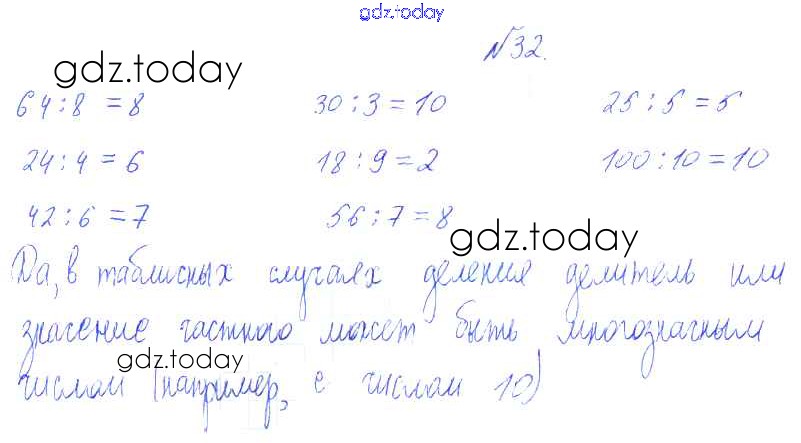 gdz.today
№32.
gdz.today
64:8 = 8 30:3 = 10 25:5 = 5
24:4 = 6 18:9 = 2 100:10 = 10
42:6 = 7 56:7 = 8
gdz.today
Да, в табличных случаях деления делитель или
значение частного может быть многозначным
gdz.today
числом (например, с числом 10)